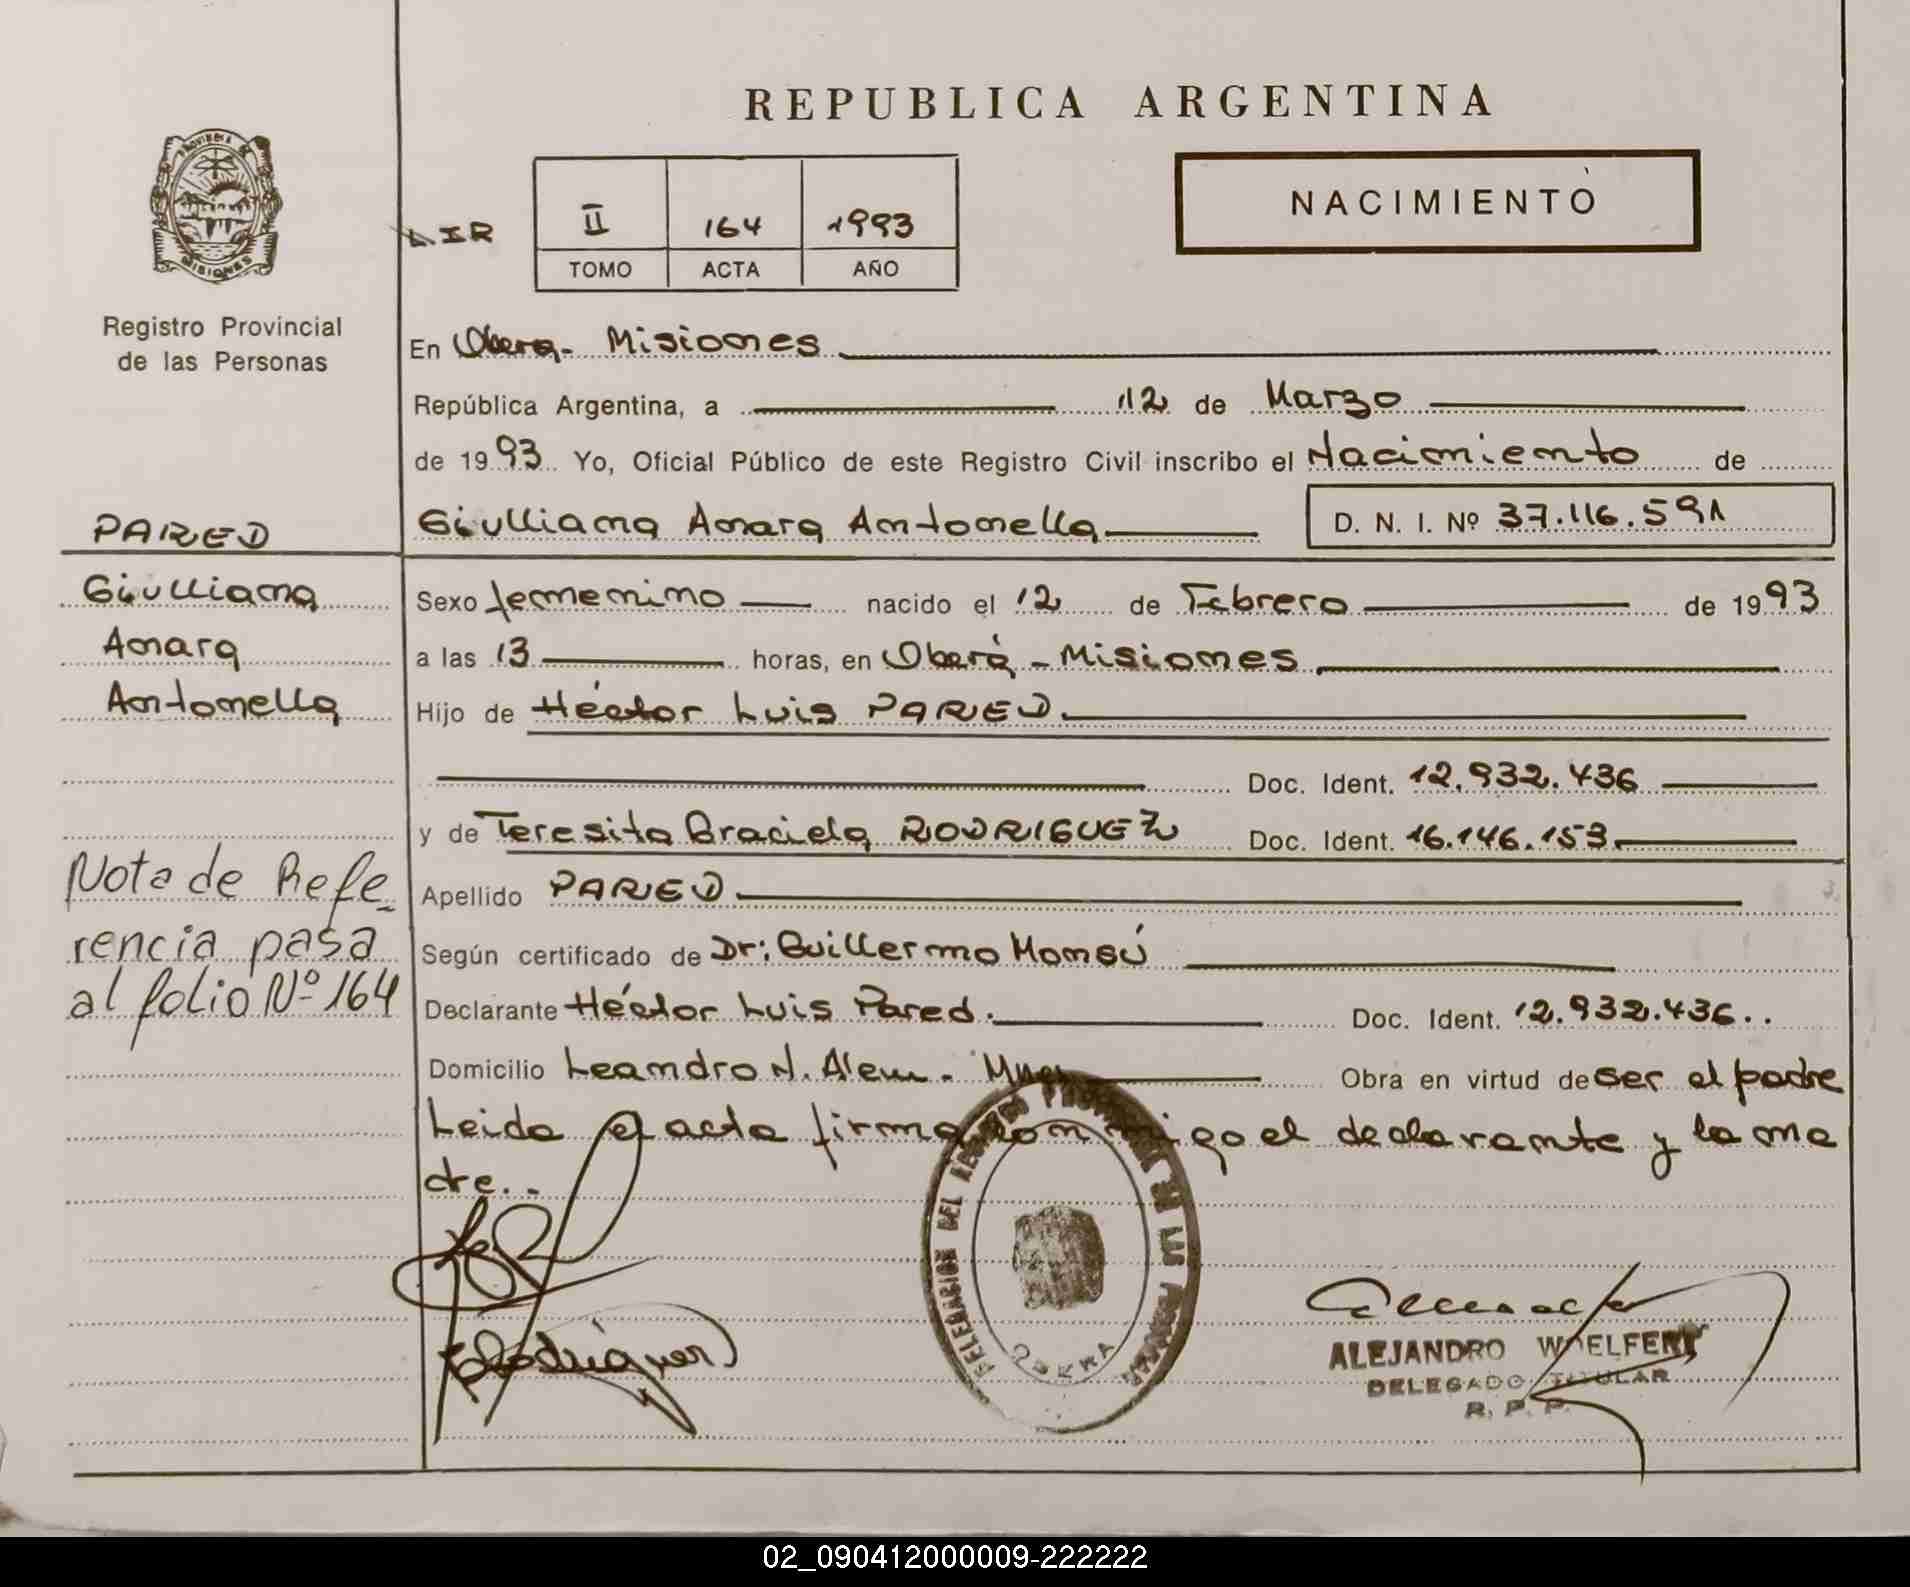 REPUBLICA ARGENTINA
PROVINCIA DE
MISIONES
Registro Provincial
de las Personas
LIR
II 164 1993
TOMO ACTA AÑO
NACIMIENTO
En Obera - Misiones
República Argentina, a 12 de Marzo
de 1993 Yo, Oficial Público de este Registro Civil inscribo el Nacimiento de
Giulliana Anara Antonella D. N. I. Nº 37.116.591
PARED
Giulliana
Anara
Antonella
Sexo femenino nacido el 12 de Febrero de 1993
a las 13 horas, en Oberá - Misiones
Hijo de Héctor Luis PARED
Doc. Ident. 12.932.436
y de Teresita Graciela RODRIGUEZ Doc. Ident. 16.146.153
Apellido PARED
Según certificado de Dr: Guillermo Monsú
Declarante Héctor Luis Pared. Doc. Ident. 12.932.436..
Domicilio Leandro N. Alem - Obra en virtud de ser el padre
Leida el acta firma conmigo el declarante y la ma
dre..
Nota de Refe-
rencia pasa
al folio Nº 164
DELEGACION DEL REGISTRO PROVINCIAL DE LAS PERSONAS
OBERA
ALEJANDRO WOELFERT
DELEGADO TITULAR
R. P. P.
02_090412000009-222222